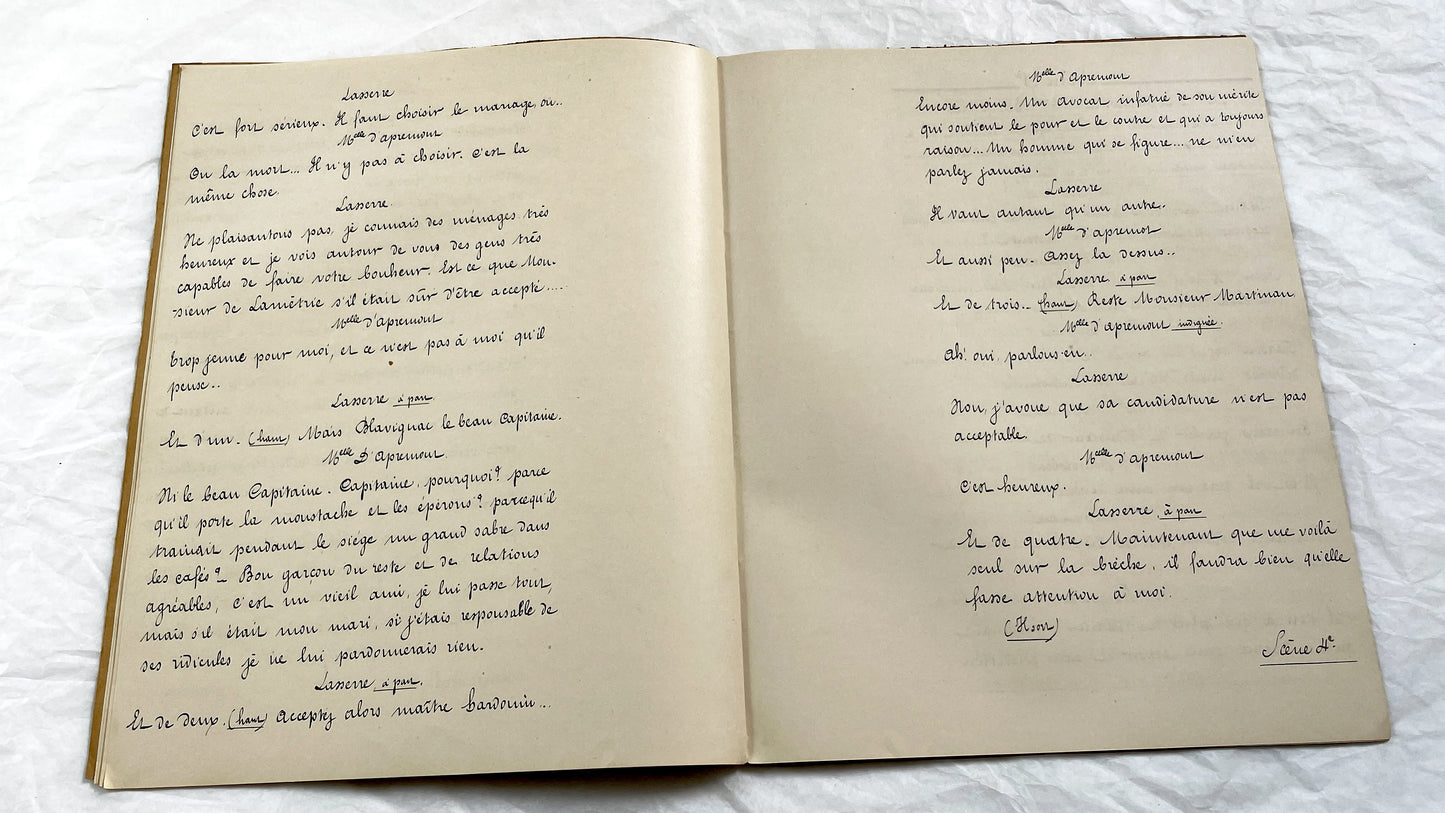 Lasserre
C'est fort sérieux. Il faut choisir le mariage, ou..
Melle d'apremont
Ou la mort... Il n'y pas à choisir. C'est la
même chose.
Lasserre.
Ne plaisantons pas, je connais des ménages très
heureux et je vois autour de vous des gens très
capables de faire votre bonheur. Est ce que Mon-
sieur de Lamétrie s'il était sûr d'être accepté.....
Melle d'Apremont
Trop jeune pour moi, et ce n'est pas à moi qu'il
pense..
Lasserre à part.
Et d'un. (haut) Mais Blavignac le beau Capitaine.
Melle D'Apremont.
Ni le beau Capitaine. Capitaine, pourquoi? parce
qu'il porte la moustache et les éperons? parcequ'il
trainait pendant le siège un grand sabre dans
les cafés? _ Bon garçon du reste et de relations
agréables, c'est un vieil ami, je lui passe tout,
mais s'il était mon mari, si j'étais responsable de
ses ridicules je ne lui pardonnerais rien.
Lasserre à part.
Et de deux. (haut) Acceptez alors maître Bardouin...
Melle d'Apremont
Encore moins. Un avocat infatué de son mérite
qui soutient le pour et le contre et qui a toujours
raison... Un homme qui se figure... ne m'en
parlez jamais.
Lasserre
Il vaut autant qu'un autre..
Melle d'apremot
Et aussi peu. Assez la dessus..
Lasserre à part
Et de trois.. (haut) Reste Monsieur Martinan.
Melle d'apremont indignée.
Ah! oui, parlons-en..
Lasserre
Non, j'avoue que sa candidature n'est pas
acceptable.
Melle d'apremont
C'est heureux.
Lasserre, à part
Et de quatre. Maintenant que me voilà
seul sur la brèche, il faudra bien qu'elle
fasse attention à moi.
(Il sort)
Scène 4e